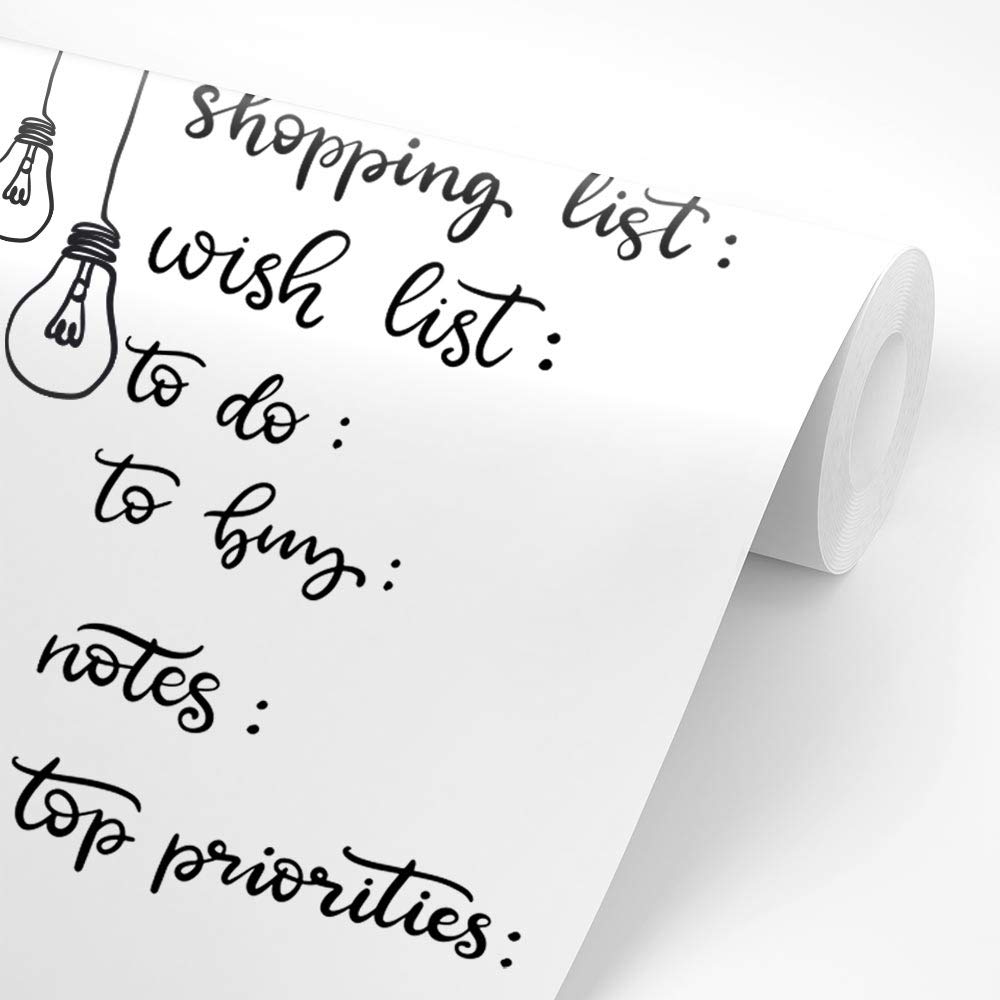 shopping list:
wish list:
to do:
to buy:
notes:
top priorities: